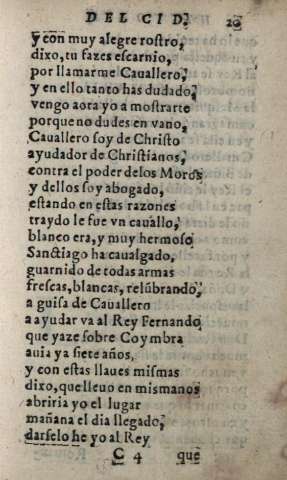 DEL CID. 20
y con muy alegre rostro,
dixo, tu fazes escarnio,
por llamarme Cauallero,
y en ello tanto has dudado,
vengo aora yo a mostrarte
porque no dudes en vano,
Cauallero soy de Christo
ayudador de Christianos,
contra el poder delos Moros
y dellos soy abogado,
estando en estas razones
traydo le fue vn cauallo,
blanco era, y muy hermoso
Sanctiago ha caualgado,
guarnido de todas armas
frescas, blancas, relũbrando,
a guisa de Cauallero
a ayudar va al Rey Fernando
que yaze sobre Coymbra
auia ya siete años,
y con estas llaues mismas
dixo, que lleuo en mis manos
abriria yo el lugar
mañana el dia llegado,
darselo he yo al Rey
C 4 que